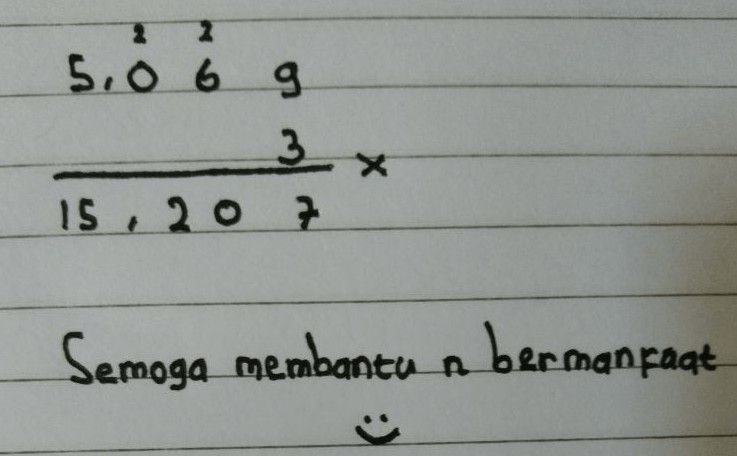 2 2
5,0 6 9
3
x
15,20 7
Semoga membantu n bermanfaat